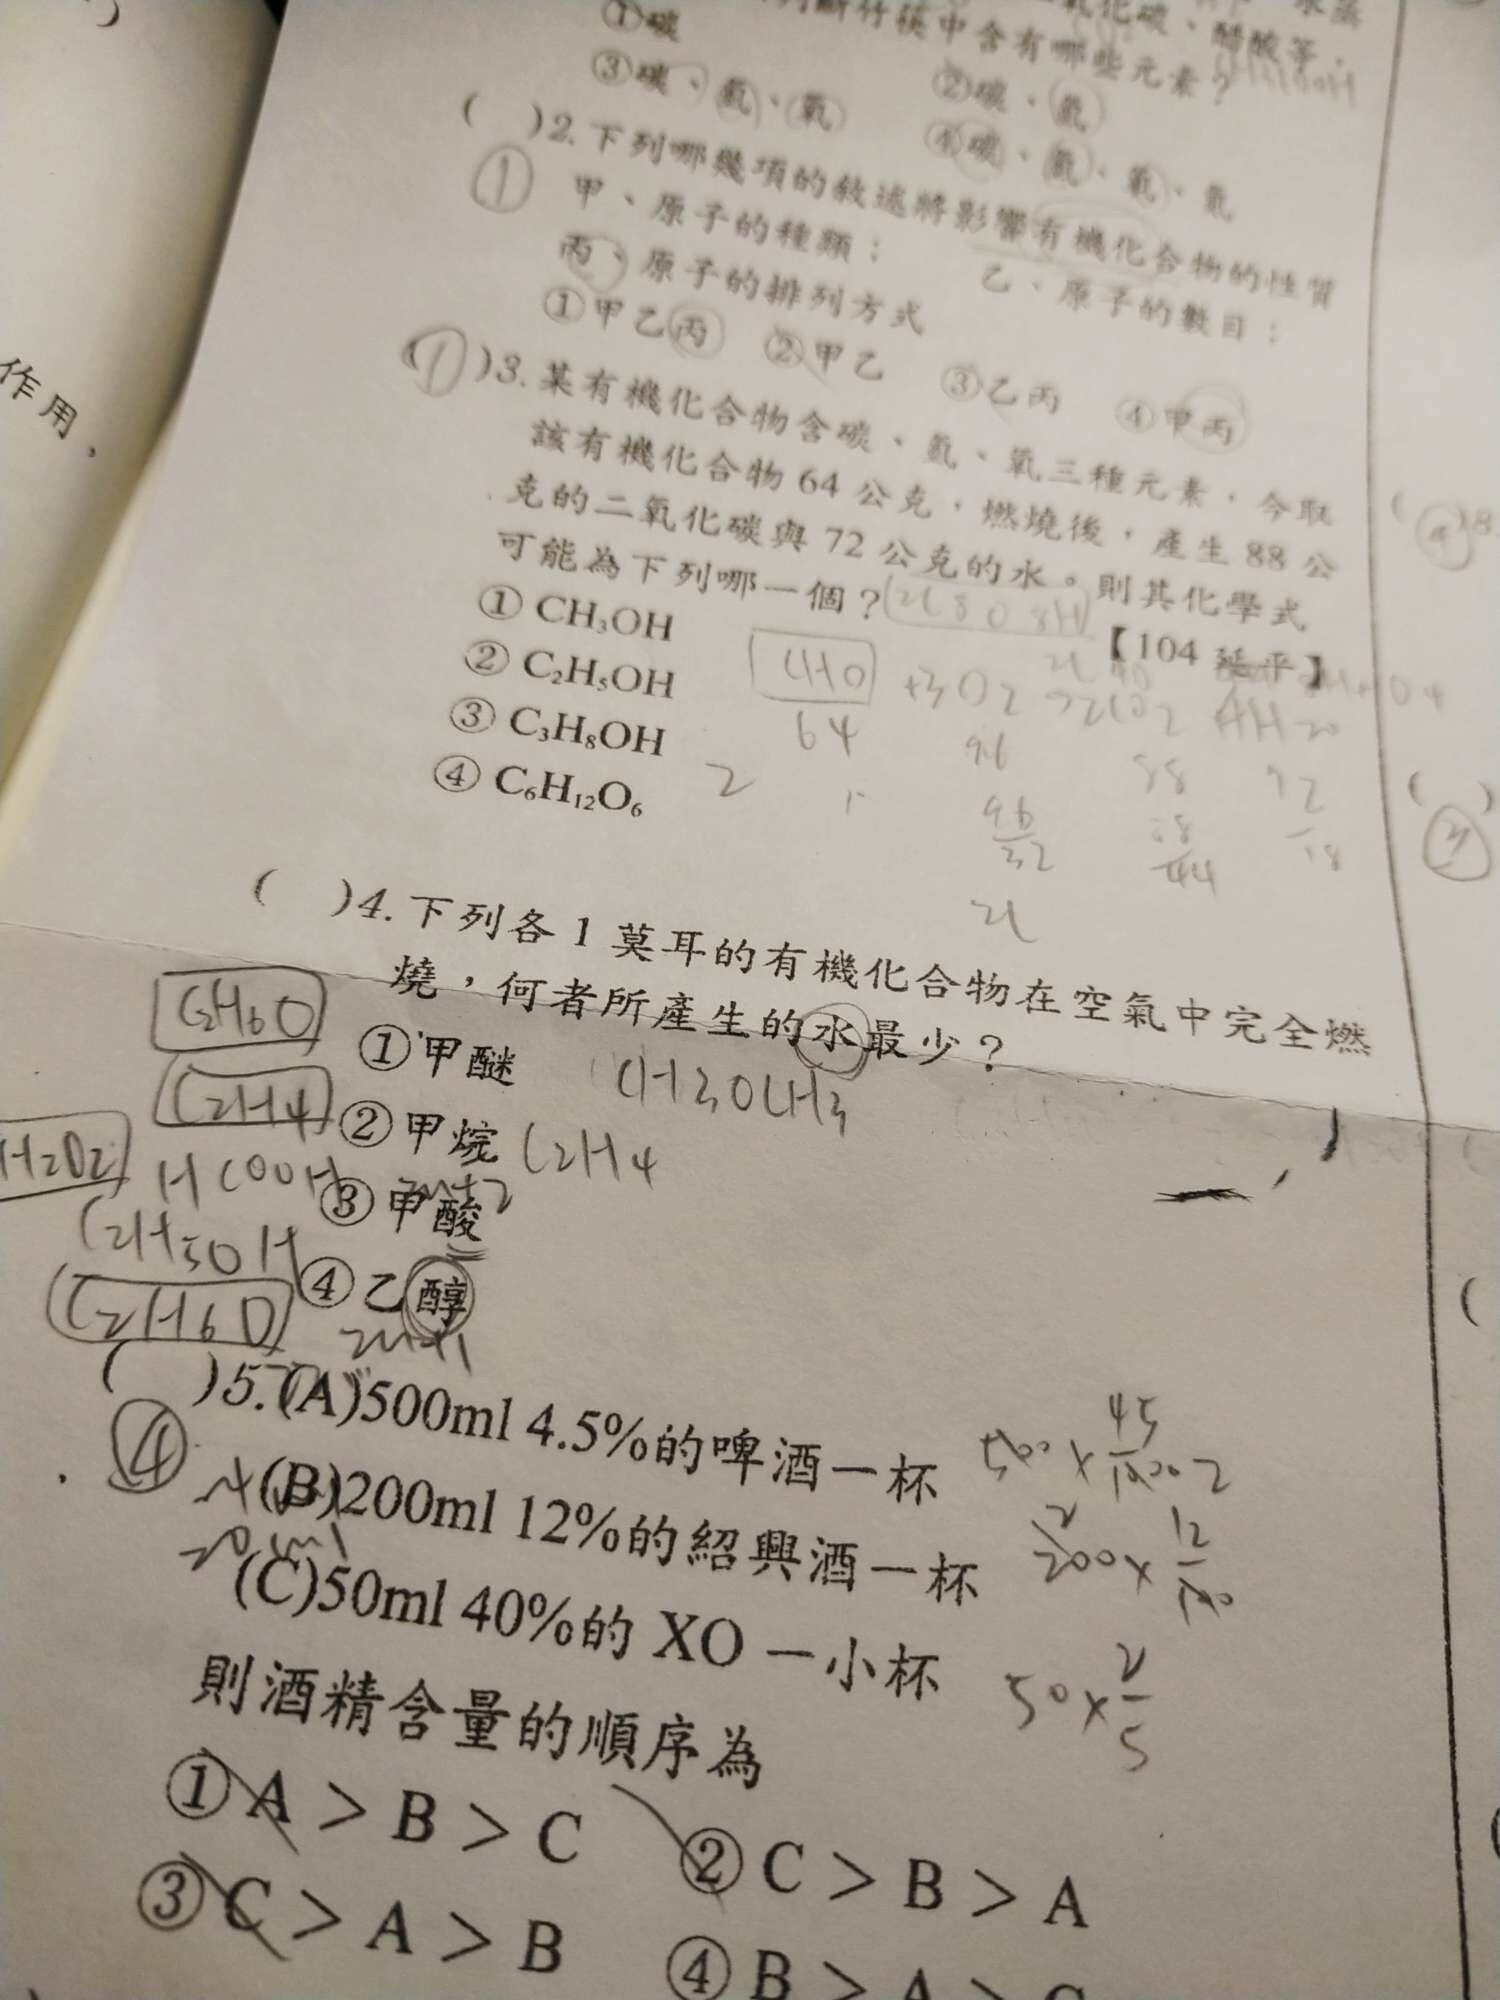 二氧化碳、醋酸等,
判斷竹筷中含有哪些元素?
①碳 ②碳、氫
③碳、氫、氧 ④碳、氫、氧、氮
( )2.下列哪幾項的敘述將影響有機化合物的性質
①
甲、原子的種類; 乙、原子的數目;
丙、原子的排列方式
①甲乙丙 ②甲乙 ③乙丙 ④甲丙
(1)3.某有機化合物含碳、氫、氧三種元素,今取
該有機化合物 64 公克,燃燒後,產生 88 公
克的二氧化碳與 72 公克的水。則其化學式
可能為下列哪一個? 【104 延平】
① CH₃OH
② C₂H₅OH
③ C₃H₈OH
④ C₆H₁₂O₆
CHO +3O2
64 96 88 72
2
96 88 18
32 44
( )4.下列各 1 莫耳的有機化合物在空氣中完全燃
燒,何者所產生的水最少?
C2H6O ①甲醚 CH3OCH3
C2H4 ②甲烷 C2H4
H2O2 HCOOH ③甲酸
C2H5OH
C2H6O ④乙醇
2n+1
( )5.(A)500ml 4.5%的啤酒一杯 500× 45/1000
④
(B)200ml 12%的紹興酒一杯 200× 12/100
(C)50ml 40%的 XO 一小杯 50× 2/5
則酒精含量的順序為
①A > B > C ②C > B > A
③C > A > B ④B > A > C
作用,